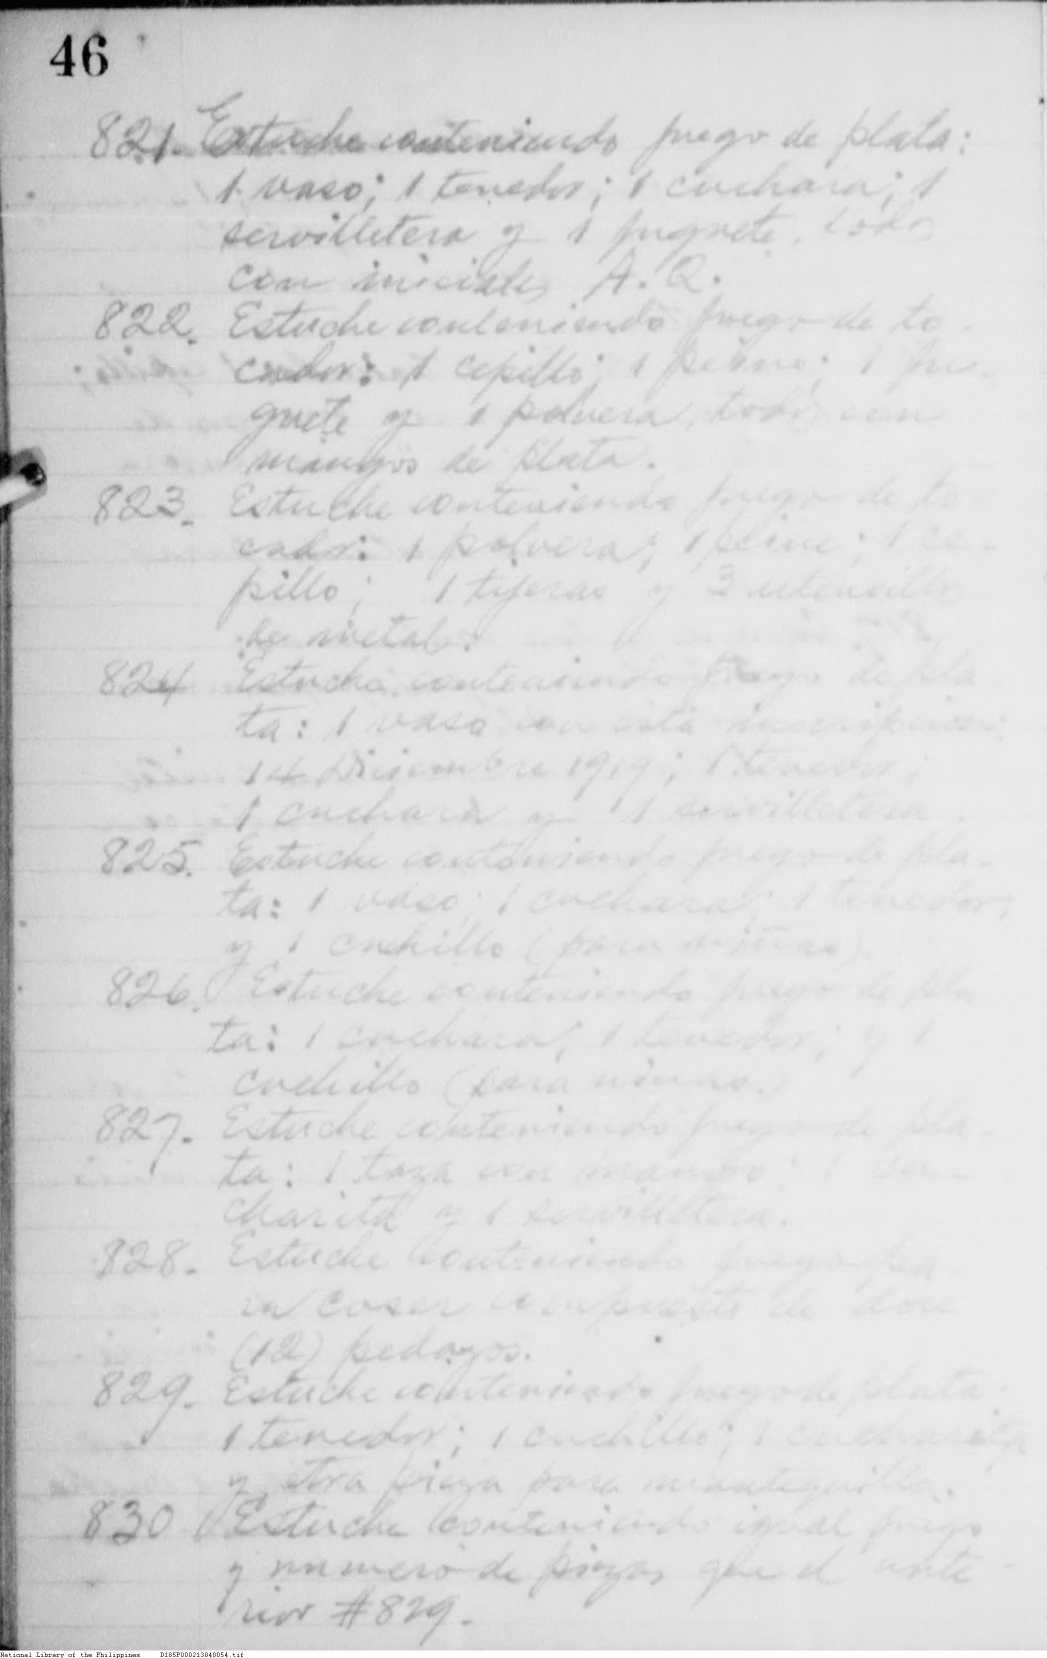 46
821. Estuche conteniendo juego de plata:
1 vaso; 1 tenedor; 1 cuchara; 1
servilletera y 1 juguete, todos
con iniciales A. Q.
822. Estuche conteniendo juego de to-
cador: 1 cepillo; 1 peine; 1 ju-
guete y 1 polvera, todos con
mangos de plata.
823. Estuche conteniendo juego de to-
cador: 1 polvera; 1 peine; 1 ce-
pillo; 1 tijeras y 3 utensilios
de metal.
824 Estuche conteniendo juego de pla-
ta: 1 vaso con esta inscripcion:
14 Diciembre 1919; 1 tenedor;
1 cuchara y 1 servilletera.
825. Estuche conteniendo juego de pla-
ta: 1 vaso; 1 cuchara; 1 tenedor;
y 1 cuchillo (para niños)
826. Estuche conteniendo juego de pla-
ta: 1 cuchara; 1 tenedor; y 1
cuchillo (para niños.)
827. Estuche conteniendo juego de pla-
ta: 1 taza con mango; 1 cu-
charita y 1 servilletera.
828. Estuche conteniendo juego pa-
ra coser compuesto de doce
(12) pedazos.
829. Estuche conteniendo juego de plata:
1 tenedor; 1 cuchillo; 1 cucharita
y otra pieza para mantequilla.
830 Estuche conteniendo igual juego
y numero de piezas que el ante-
rior #829.
National Library of the Philippines D185P000213840054.tif